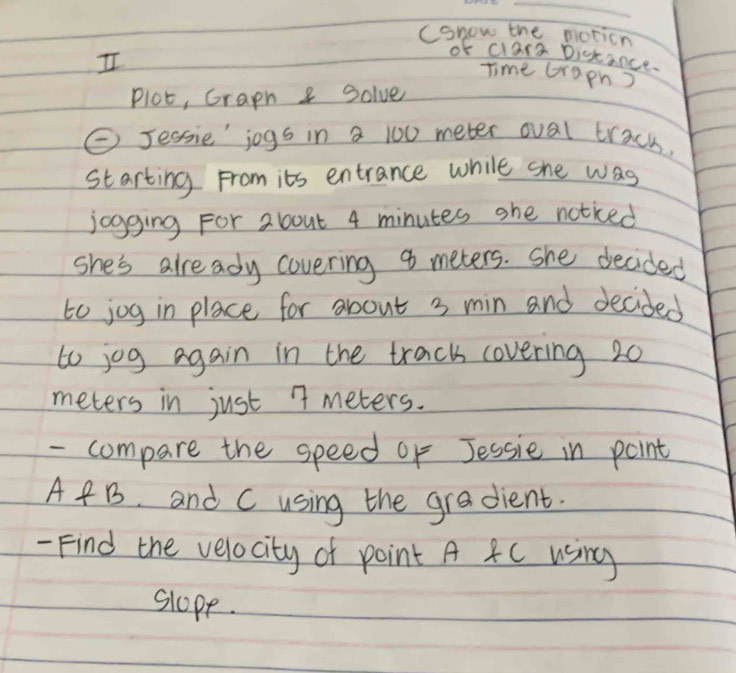 (Show the motion
of Clara Distance-
Time Graph)
II
Plot, Graph & Solve
Jessie' jogs in a 100 meter oval track.
Starting From its entrance while she was
jogging For about 4 minutes she noticed
she's already covering 8 meters. She decided
to jog in place for about 3 min and decided
to jog again in the track covering 20
meters in just 7 meters.
- compare the speed OF Jessie in point
A & B. and C using the gradient.
- Find the velocity of point A & C using
slope.